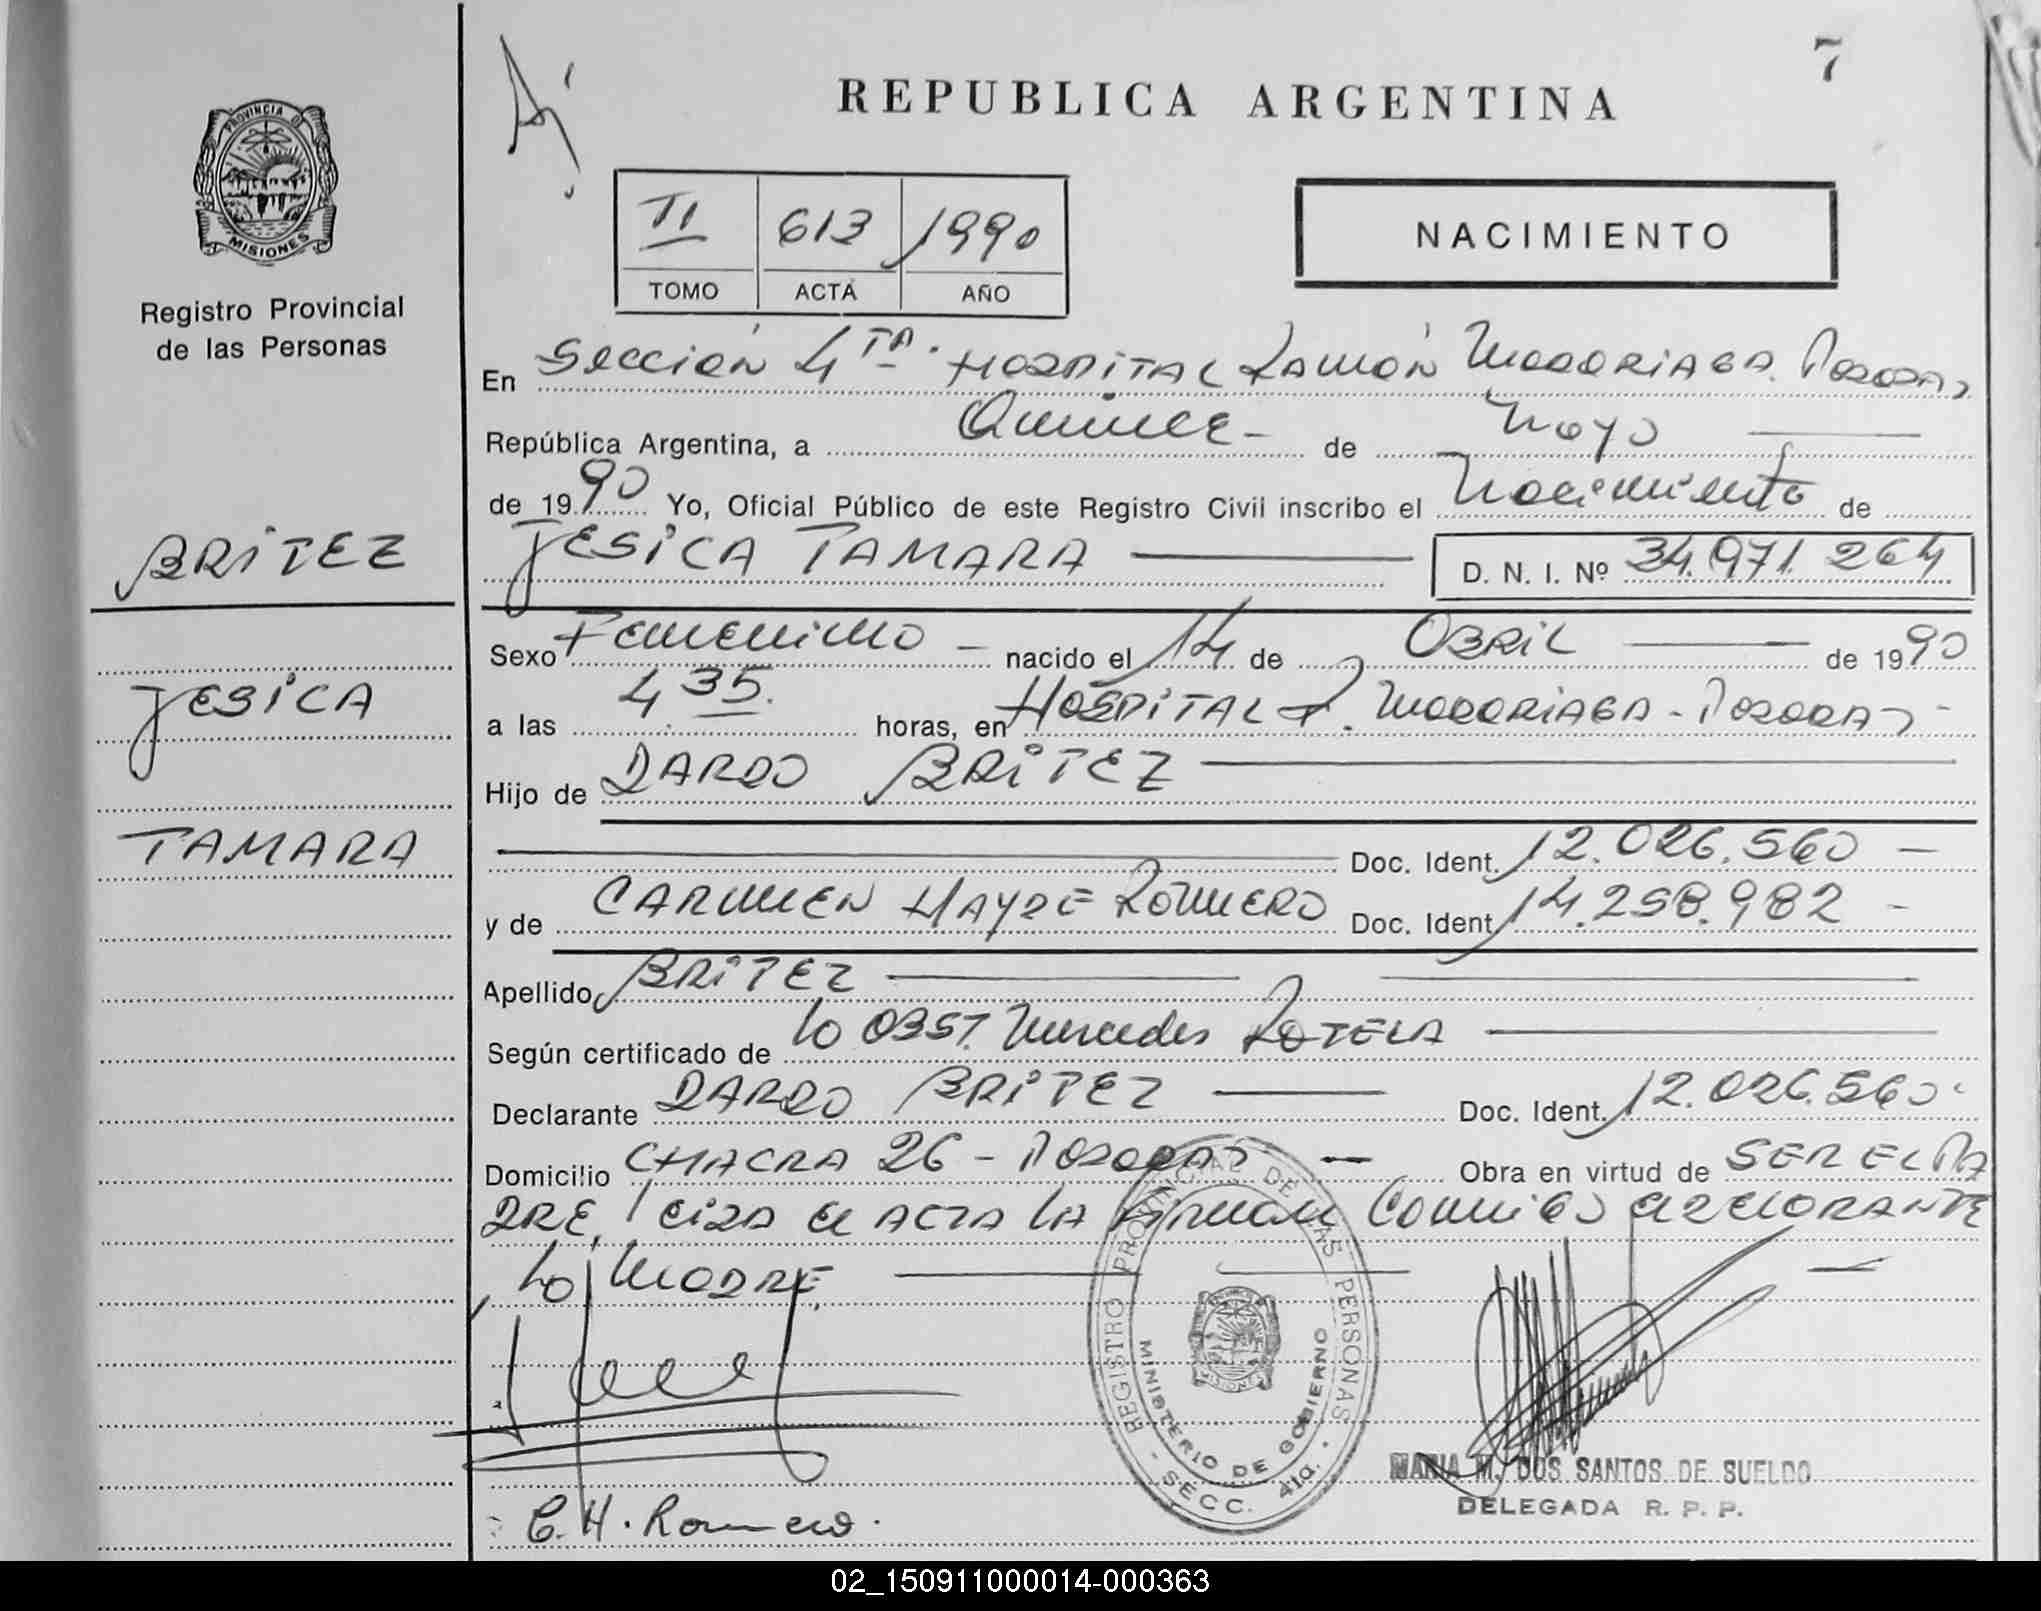 7
REPUBLICA ARGENTINA
PROVINCIA D
MISIONES
Registro Provincial
de las Personas
II 613 1990
TOMO ACTA AÑO
NACIMIENTO
En Sección 4TA. HOSPITAL RAMÓN MADARIAGA. POSADAS
República Argentina, a Quince - de Mayo
de 1990 Yo, Oficial Público de este Registro Civil inscribo el Nacimiento de
BRITEZ
JESICA TAMARA D. N. I. Nº 34.971.264
Sexo Femenino - nacido el 14 de ABRIL de 1990
JESICA
a las 4 35. horas, en HOSPITAL R. MADARIAGA - POSADAS -
Hijo de DARDO BRITEZ
TAMARA
Doc. Ident. 12.026.560 -
y de CARMEN HAYDE ROMERO Doc. Ident. 14.258.982 -
Apellido BRITEZ
Según certificado de la OBST. Mercedes ROTELA
Declarante DARDO BRITEZ Doc. Ident. 12.026.560.
Domicilio CHACRA 26 - POSADAS - Obra en virtud de SER EL PA
DRE, leida el ACTA LA FIRMAN CONMIGO el DECLARANTE
, la MADRE,
REGISTRO PROVINCIAL DE LAS PERSONAS
MINISTERIO DE GOBIERNO
- SECC. 4ta. -
MARIA M. DOS SANTOS DE SUELDO
DELEGADA R. P. P.
C. H. Romero.
02_150911000014-000363